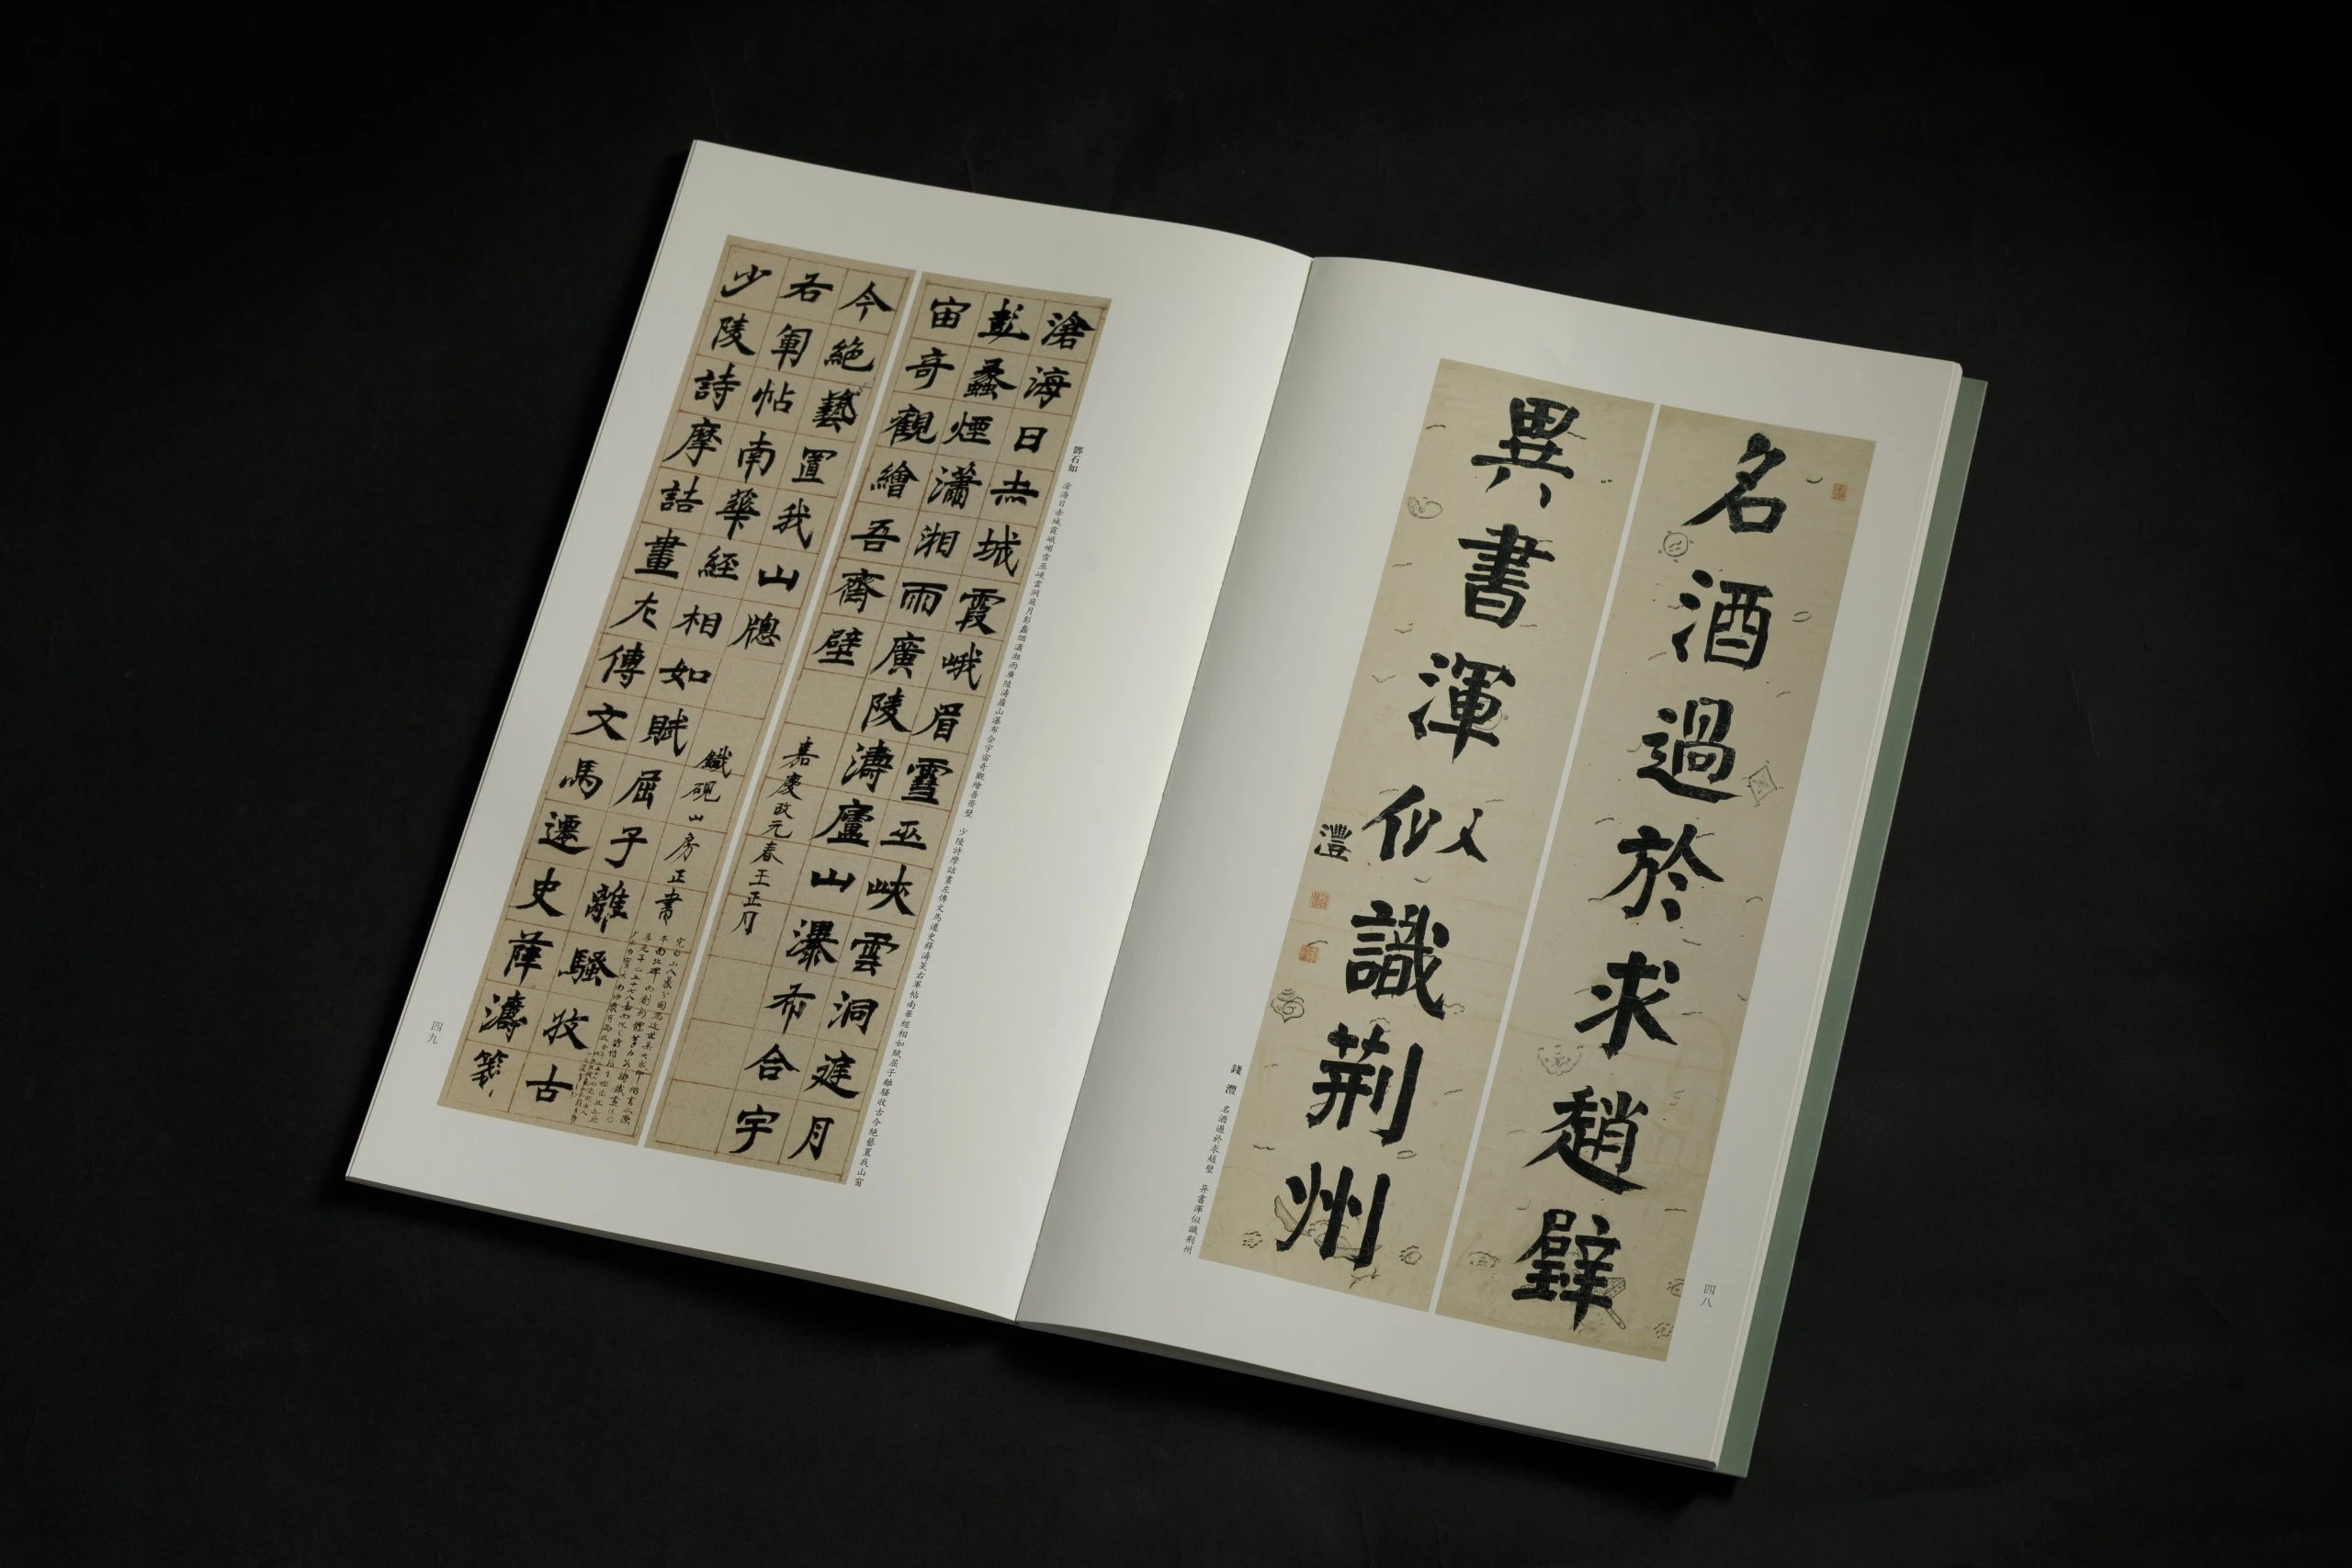 名酒過於求趙璧
異書渾似識荊州
灃
錢灃 名酒過於求趙璧 异書渾似識荆州
四八
滄海日赤城霞峨眉雪巫峽雲洞庭月
彭蠡煙瀟湘雨廣陵濤廬山瀑布合宇
宙奇觀繪吾齋壁
嘉慶改元春王正月
少陵詩摩詰畫左傳文馬遷史薛濤箋
右軍帖南華經相如賦屈子離騷收古
今絕藝置我山牕
鐵硯山房正書
鄧石如 滄海日赤城霞峨嵋雪巫峽雲洞庭月彭蠡烟瀟湘雨廣陵濤廬山瀑布合宇宙奇觀繪吾齋壁 少陵詩摩詰畫左傳文馬遷史薛濤箋右軍帖南華經相如賦屈子離騷收古今絕藝置我山窗
四九